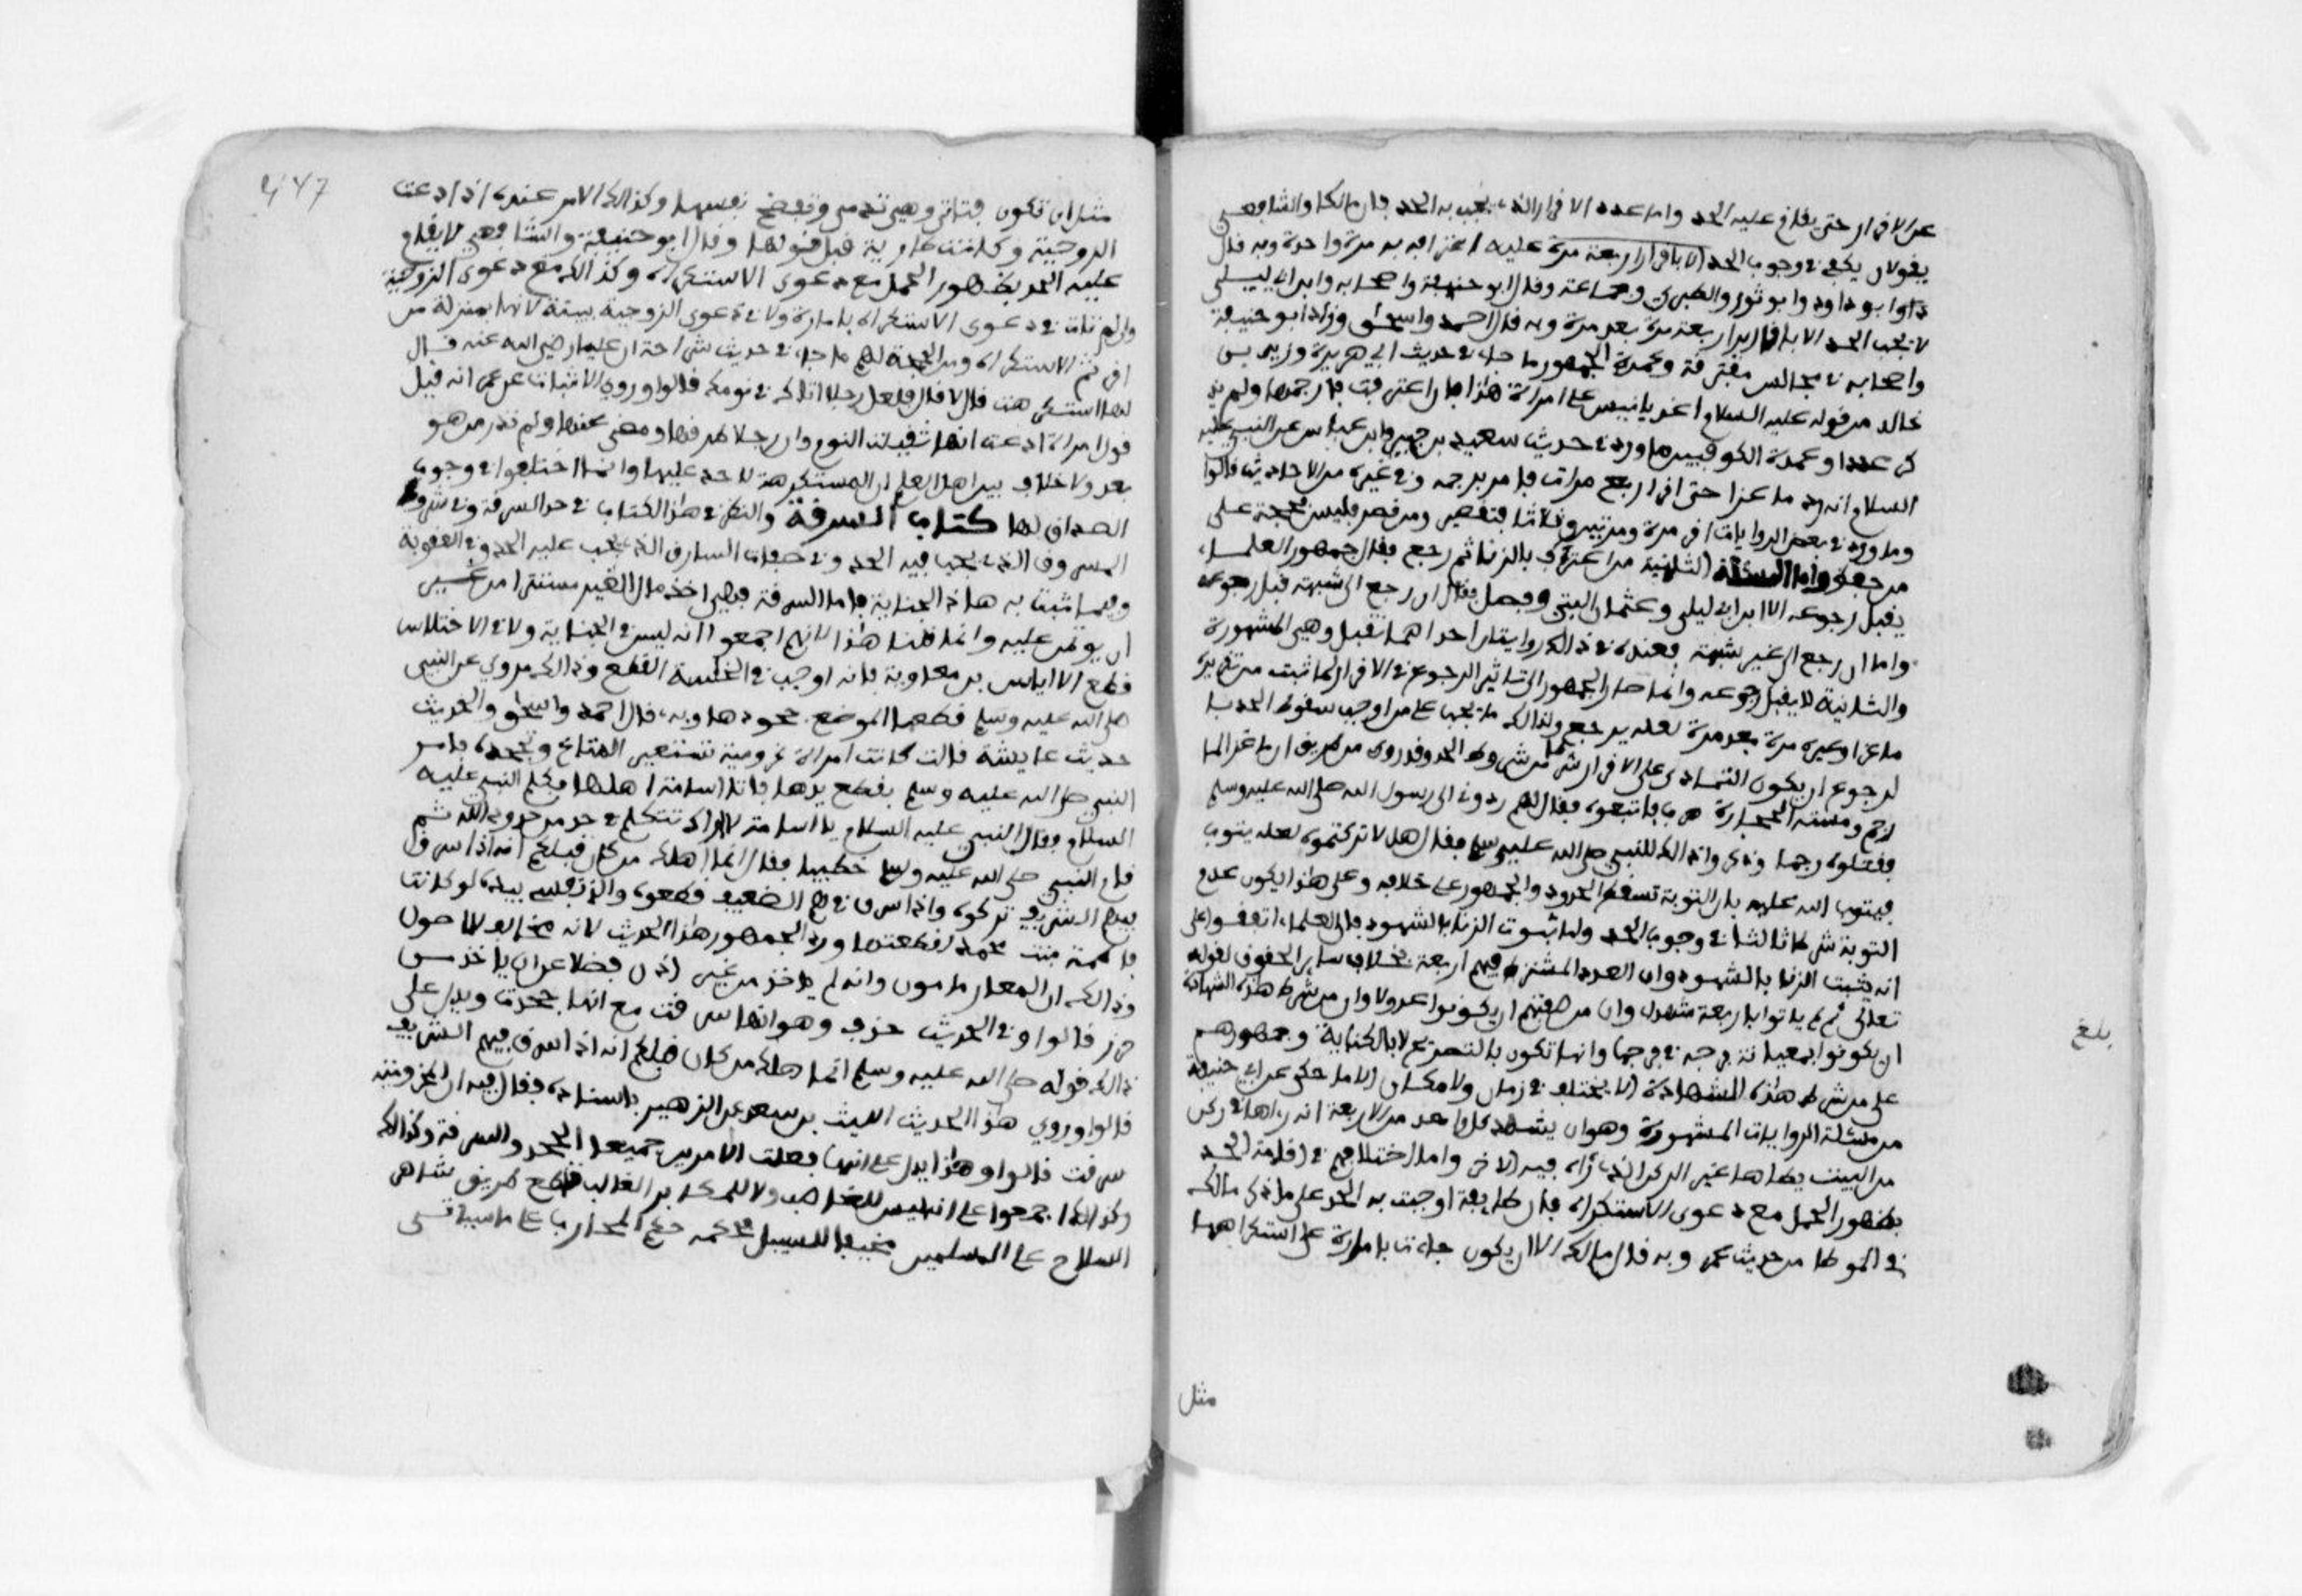 عن الاقرار حتى يقام عليه الحد واما عدد الاقرار الذي يجب به الحد فان مالكا والشافعي
يقولان يكفي في وجوب الحد عليه اعترافه به مرة واحدة وبه قال
داوا بو داود وابو ثور والطبري وجماعة وقال ابو حنيفة واصحابه وابن ابي ليلى
لا يجب الحد الا باقارير اربعة مرة بعد مرة وبه قال احمد واسحاق وزاد ابو حنيفة
واصحابه في مجالس مفترقة وعمدة الجمهور ما جاء في حديث ابي هريرة وزيد بن
خالد من قوله عليه السلام اغد يا انيس على امراة هذا فان اعترفت فارجمها ولم يذ
كر عددا وعمدة الكوفيين ما ورد في حديث سعيد بن جبير عن ابن عباس عن النبي عليه
السلام انه رد ماعزا حتى اقر اربع مرات فامر برجمه وفي غيره من الاحاديث قالوا
وما ورد في بعض الروايات اقر مرة ومرتين وثلاثا فتقصير ومن قصر فليس بحجة على
من حفظ واما المسئلة الثانية من اعترف بالزنا ثم رجع فقال جمهور العلماء
يقبل رجوعه الا ابن ابي ليلى وعثمان البتي وفصل فقال ان رجع الى شبهة قبل رجوعه
واما ان رجع الى غير شبهة فعنده في ذالك روايتان احداهما تقبل وهي المشهورة
والثانية لا يقبل رجوعه وانما صار الجمهور الى تاثير الرجوع في الاقرار لما ثبت من تقريره
ماعزا وغيره مرة بعد مرة لعله يرجع ولذالك ما يجب على من اوجب سقوط الحد با
لرجوع ان يكون التمادي على الاقرار شرط من شروط الحد وقد روي من طريق ان ماعزا لما
رجم ومسته الحجارة هرب فاتبعوه فقال لهم ردوني الى رسول الله صلى الله عليه وسلم
فقتلوه رجما وذكروا ذالك للنبي صلى الله عليه وسلم فقال هلا تركتموه لعله يتوب
فيتوب الله عليه بان التوبة تسقط الحدود والجمهور على خلافه وعلى هذا يكون عدم
التوبة شرطا ثالثا في وجوب الحد واما ثبوت الزنا بالشهود فان العلماء اتفقوا على
انه يثبت الزنا بالشهود وان العدد المشترط فيهم اربعة بخلاف ساير الحقوق لقوله
تعالى ثم لم ياتوا باربعة شهداء وان من صفتهم ان يكونوا عدولا وان من شرط هذه الشهادة
ان يكونوا بمعاينة فرجه في فرجها وانها تكون بالتصريح لا بالكناية وجمهورهم
على من شرط هذه الشهادة الا يختلف في زمان ولا مكان الا ما حكي عن ابي حنيفة
من مسئلة الزوايات المشهورة وهو ان يشهد كل واحد من الاربعة انه راها في ركن
من البيت يطاها غير الركن الذي راه فيه الاخر واما اختلافهم في اقامة الحد
بظهور الحمل مع دعوى الاستكراه فان طايفة اوجبت به الحد على ما ذكر مالك
في الموطا من حديث عمر وبه قال مالك الا ان يكون جاءت بامارة على استكراهها
بلغ
مثل
447
مثل ان تكون بكرا فتاتي وهي تدمي وتفضح نفسها وكذالك الامر عنده اذا ادعت
الزوجية وكانت طارية قبل قولها وقال ابو حنيفة والشافعي لا يقام
عليه الحد بظهور الحمل مع دعوى الاستكراه وكذالك مع دعوى الزوجية
وان لم تات في دعوى الاستكراه بامارة ولا في دعوى الزوجية ببينة لانها بمنزلة من
اقر ثم الاستكراه ومن الحجة لهم ما جاء في حديث شراحة ان عليا رضي الله عنه قال
لها استكرهت قالت لا قال فلعل رجلا اتاك في نومك قالوا وروى الاثبات عن عمر انه قبل
قول امراة ادعت انها ثقيلة النوم وان رجلا طرقها ومضى عنها ولم تدر من هو
بعد ولا خلاف بين اهل العلم ان المستكرهة لا حد عليها وانما اختلفوا في وجوب
الصداق لها كتاب السرقة والنظر في هذا الكتاب في حد السرقة وفي شروط
المسروق الذي يجب فيه الحد وفي صفات السارق الذي يجب عليه الحد وفي العقوبة
وفيما تثبت به هذه الجناية فاما السرقة فهي اخذ مال الغير مستترا من غير
ان يوتمن عليه وانما قلنا هذا لانهم اجمعوا انه ليس في الخيانة ولا في الاختلاس
قطع الا اياس بن معاوية فانه اوجب في الخلسة القطع وذالك مروي عن النبي
صلى الله عليه وسلم جحودها وبه قال احمد واسحاق والحديث
حديث عايشة قالت كانت امراة مخزومية تستعير المتاع وتجحده فامر
النبي صلى الله عليه وسلم بقطع يدها فاتا اسامة اهلها فكلم النبي عليه
السلام فقال النبي عليه السلام يا اسامة لا اراك تتكلم في حد من حدود الله ثم
قام النبي صلى الله عليه وسلم خطيبا فقال انما اهلك من كان قبلكم انه اذا سرق
فيهم الشريف تركوه واذا سرق فيهم الضعيف قطعوه والذي نفسي بيده لو كانت
فاطمة بنت محمد لقطعتها ورد الجمهور هذا الحديث لانه مخالف للاصول
وذالك ان المعار مامون وانه لم ياخذ من غير اذن فضلا عن ان ياخذ من
حرز قالوا وفي الحديث حذف وهو انها سرقت مع انها جحدت ويدل على
ذالك قوله صلى الله عليه وسلم انما اهلك من كان قبلكم انه اذا سرق فيهم الشريف
قالوا وروي هذا الحديث الليث بن سعد عن الزهري باسناده فقال فيه ان المخزومية
سرقت قالوا وهذا يدل على انها فعلت الامرين جميعا الجحد والسرقة وكذالك
وكذالك اجمعوا على انه ليس للغاصب ولا للمكابر الغالب قطع طريق شاهر
السلاح على المسلمين مخيفا للسبيل فحكمه حكم المحارب على ما سياتي